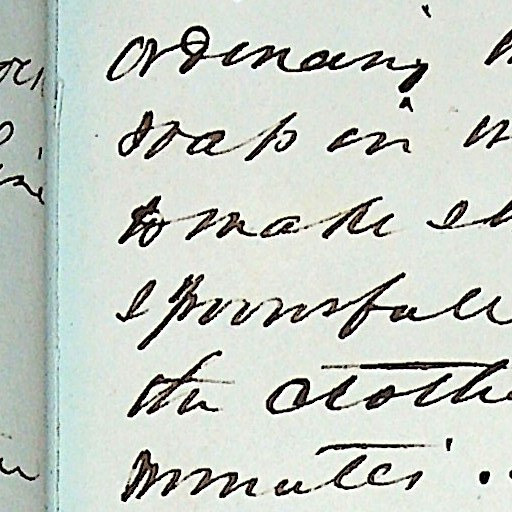 ordinary
soap in
to make
spoonsfull
the clothe
minutes.